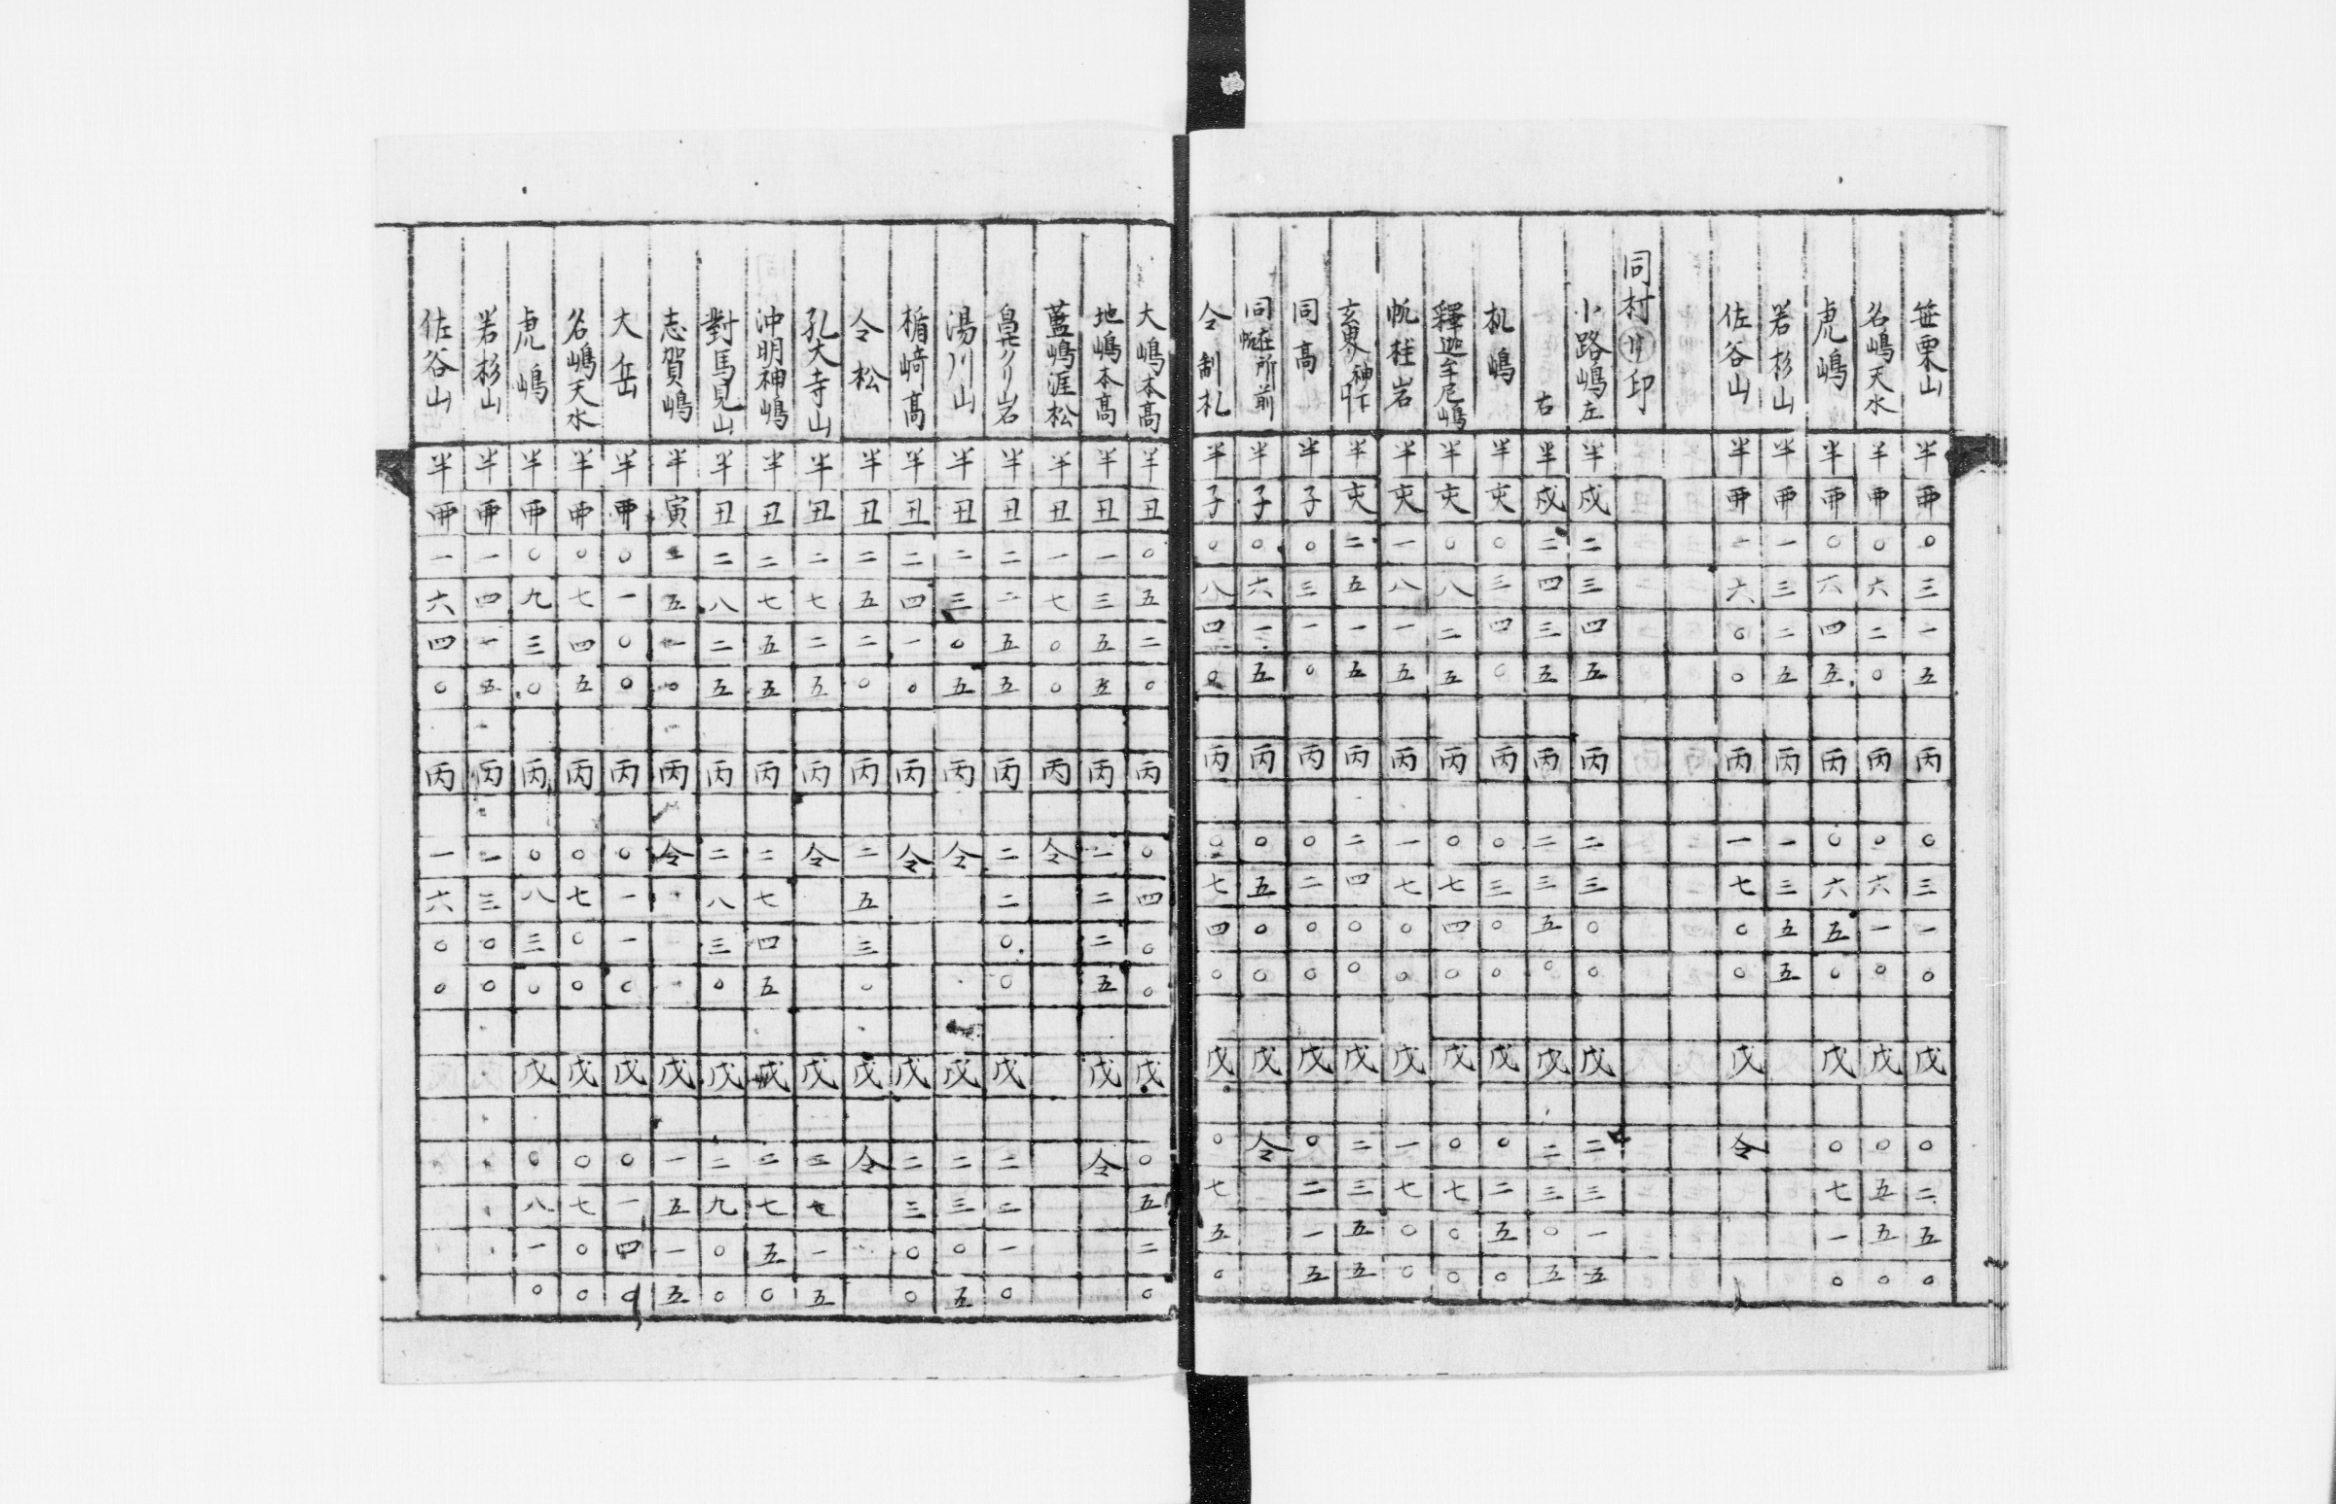 笹栗山 半 丣 〇 三 一 五 丙 〇 三 一 〇 戊 〇 二 五 〇
名嶋天水 半 丣 〇 六 二 〇 丙 〇 六 一 〇 戊 〇 五 五 〇
虎嶋 半 丣 〇 六 四 五 丙 〇 六 五 〇 戊 〇 七 一 〇
若杉山 半 丣 一 三 二 五 丙 一 三 五 五
佐谷山 半 丣 一 六 〇 〇 丙 一 七 〇 〇 戊 令
同村リ印
小路嶋左 半 戌 二 三 四 五 丙 二 三 〇 〇 戊 二 三 一 五
右 半 戌 二 四 三 五 丙 二 三 五 〇 戊 二 三 〇 五
机嶋 半 亥 〇 三 四 〇 丙 〇 三 〇 〇 戊 〇 二 五 〇
釋迦牟尼嶋 半 亥 〇 八 二 五 丙 〇 七 四 〇 戊 〇 七 〇 〇
帆柱岩 半 亥 一 八 一 五 丙 一 七 〇 〇 戊 一 七 〇 〇
玄界神下 半 亥 二 五 一 五 丙 二 四 〇 〇 戊 二 三 五 五
同高 半 子 〇 三 一 〇 丙 〇 二 〇 〇 戊 〇 二 一 五
同在所前帆 半 子 〇 六 一 五 丙 〇 五 〇 〇 戊 令
令制札 半 子 〇 八 四 〇 丙 〇 七 四 〇 戊 〇 七 五 〇
大嶋本高 半 丑 〇 五 二 〇 丙 〇 四 〇 〇 戊 〇 五 二 〇
地嶋本高 半 丑 一 三 五 五 丙 一 二 二 五 戊 令
藍嶋涯松 半 丑 一 七 〇 〇 丙 令
クリ岩 半 丑 二 二 五 五 丙 二 二 〇 〇 戊 二 二 一 〇
湯川山 半 丑 二 三 〇 五 丙 令 戊 二 三 〇 五
楯﨑高 半 丑 二 四 一 〇 丙 令 戊 二 三 〇 〇
令松 半 丑 二 五 二 〇 丙 二 五 三 〇 戊 令
孔大寺山 半 丑 二 七 二 五 丙 令 戊 二 七 一 五
沖明神嶋 半 丑 二 七 五 五 丙 二 七 四 五 戊 二 七 五 〇
對馬見山 半 丑 二 八 二 五 丙 二 八 三 〇 戊 二 九 〇 〇
志賀嶋 半 寅 二 五 一 〇 丙 令 戊 一 五 一 五
大岳 半 丣 〇 一 〇 〇 丙 〇 一 一 〇 戊 〇 一 四 〇
名嶋天水 半 丣 〇 七 四 五 丙 〇 七 〇 〇 戊 〇 七 〇 〇
虎嶋 半 丣 〇 九 三 〇 丙 〇 八 三 〇 戊 〇 八 一 〇
若杉山 半 丣 一 四 一 五 丙 一 三 〇 〇
佐谷山 半 丣 一 六 四 〇 丙 一 六 〇 〇